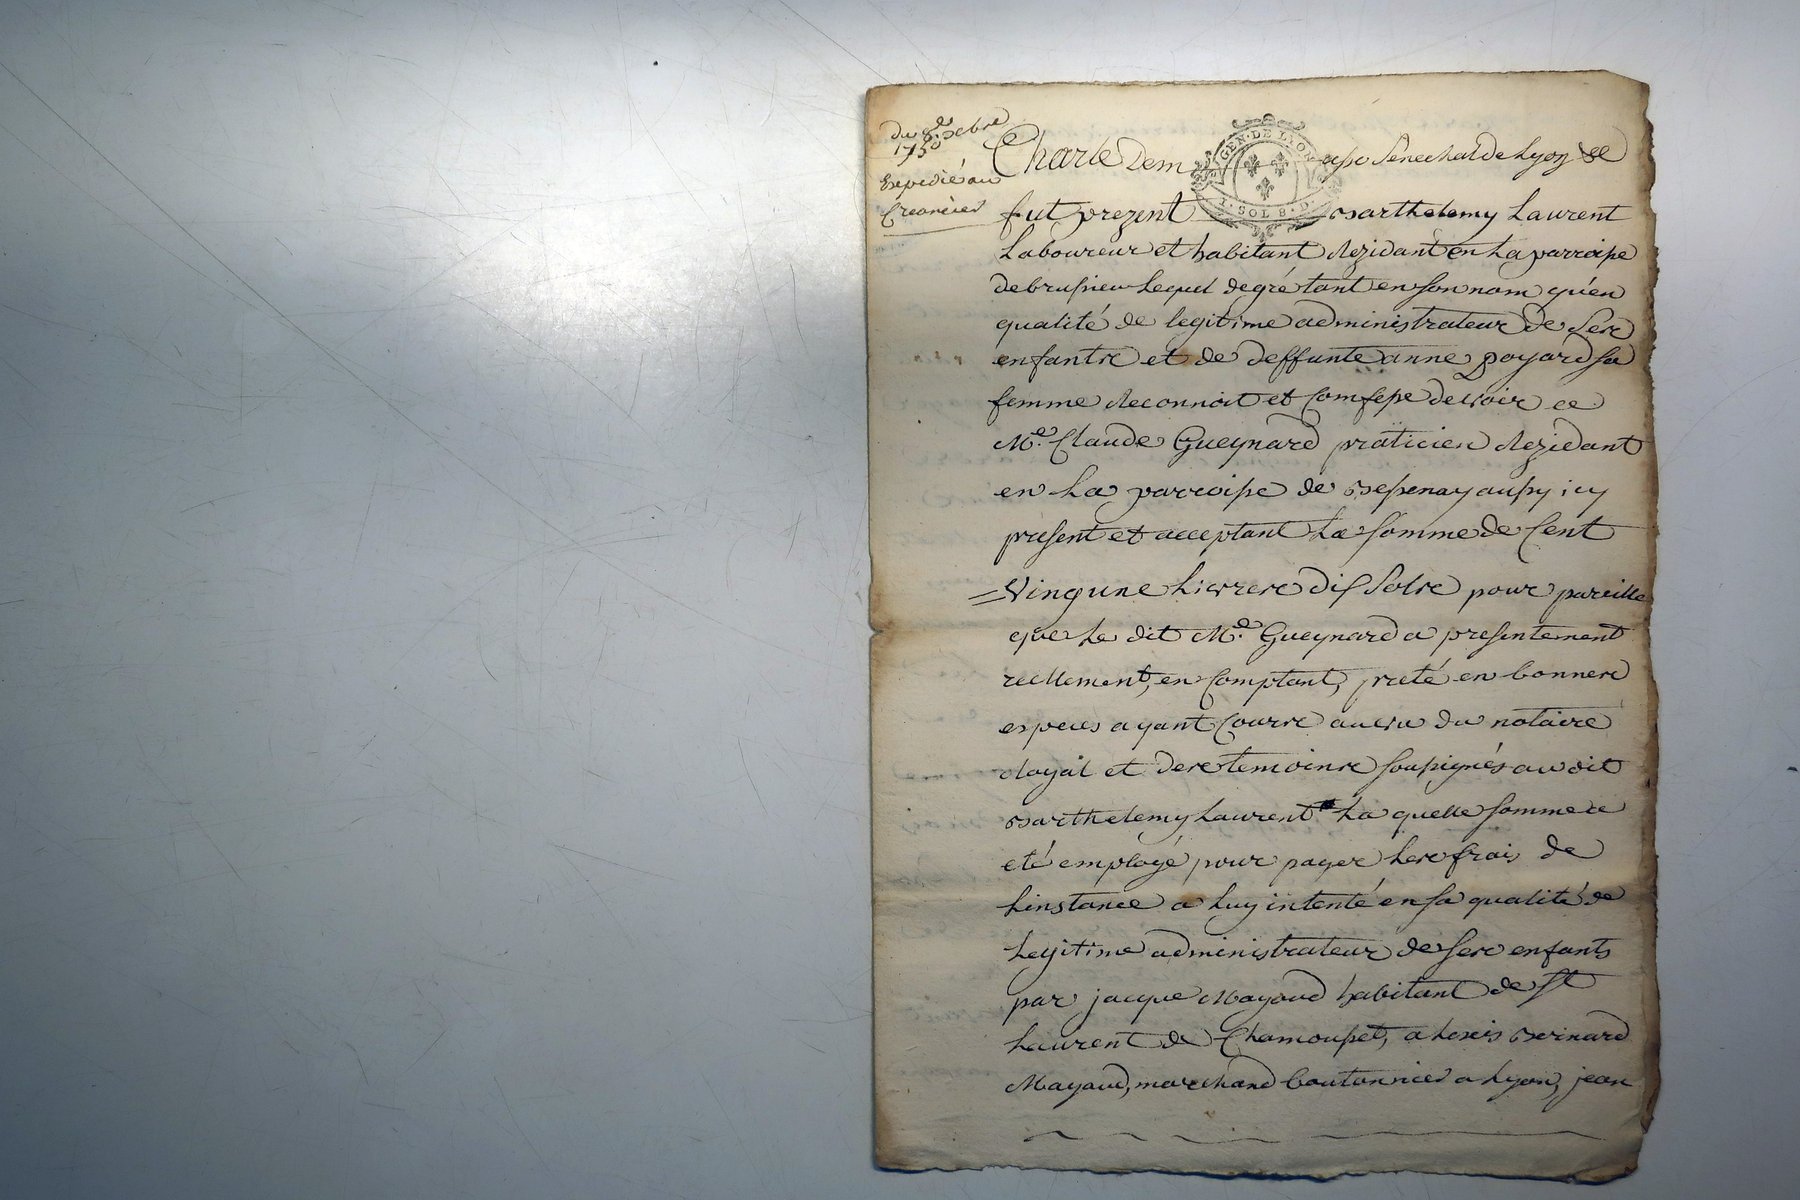 du 8e 8bre
1750
Expedié au
Creancier
GEN. DE LYON
1. SOL 8. D.
Charle Dem Senechal de Lyon &c
fut prezent Barthelemy Laurent
Laboureur et habitant Rezidant en La parroisse
de brussieu Lequel de gré tant en son nom qu'en
qualité de legitime administrateur de Ses
enfants et de deffunte anne poyard sa
femme Reconnoit et Confesse devoir a
Me. Claude Gueynard praticien Rezidant
en La parroisse de Bessenay aussy icy
present et acceptant La Somme de Cent
Vingune Livres dix Sols pour pareille
que Le dit Me. Gueynard a presentement
reellement, en Comptant, preté en bonnes
especes ayant Cours au vu du notaire
Royal et des temoins soussignés au dit
Barthelemy Laurent La quelle somme a
eté employé pour payer Les frais de
Linstance a Luy intenté en sa qualité de
Legitime administrateur de ses enfants
par jacque Mayoud habitant de St
Laurent de Chamousset, alexis Bernard
Mayoud, marchand boutonnier a Lyon, jean